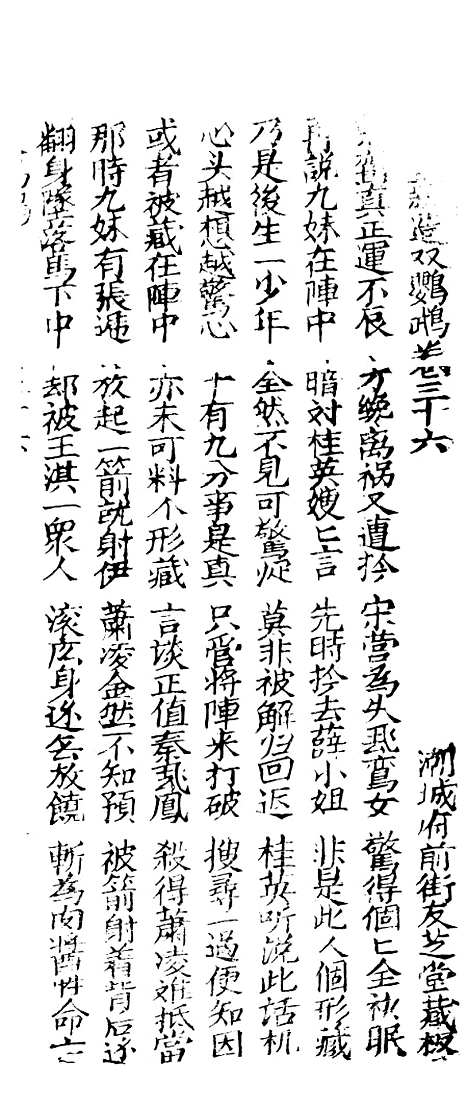 造双鹦鵡卷三十六 潮城府前街友芝堂藏板
真正運不辰 方纔离祸又遭擒 宋营為失飛鸾女 驚得個匕全袂眠
再説九妹在陣中 暗对桂英嫂匕言 先時擒去薛小姐 非是此人個形藏
乃是後生一少年 全然不見可驚疑 莫非被解归回返 桂英听説此話机
心头越想越驚心 十有九分事是真 只管将陣来打破 搜尋一过便知因
或者被藏在陣中 亦未可料个形藏 言谈正值秦飛鳳 殺得蕭凌难抵當
那時九妹有張遲 放起一箭就射伊 蕭凌全然不知預 被箭射着背后边
翻身墜落馬下中 却被王淇一衆人 身边无放饒 斬為肉醬性命亡